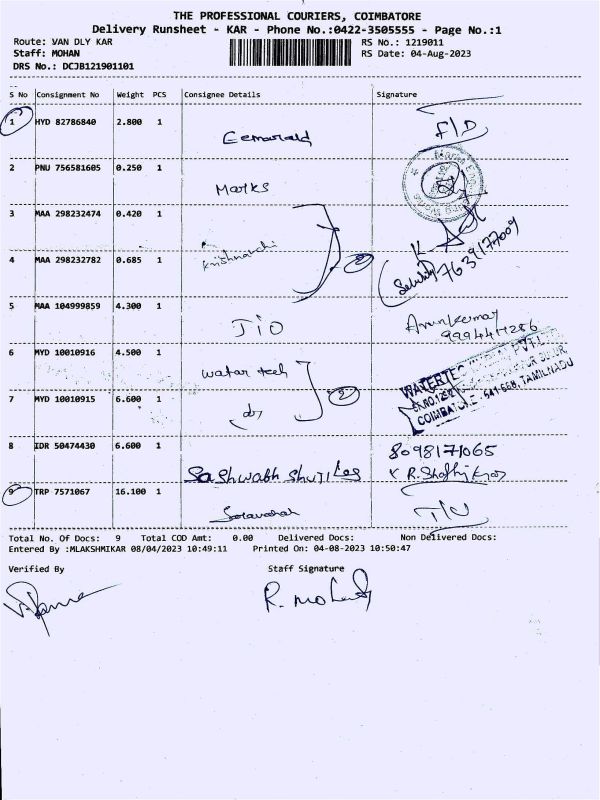 THE PROFESSIONAL COURIERS, COIMBATORE
Delivery Runsheet - KAR - Phone No.:0422-3505555 - Page No.:1
Route: VAN DLY KAR RS No.: 1219011
Staff: MOHAN RS Date: 04-Aug-2023
DRS No.: DCJB121901101
S No Consignment No Weight PCS Consignee Details Signature
1 HYD 82786840 2.800 1 Eemarald F/D
2 PNU 756581605 0.250 1 Marks
3 MAA 298232474 0.420 1
4 MAA 298232782 0.685 1 2 7639177009
5 MAA 104999859 4.300 1 JIO Arunkumar
9994417286
6 MYD 10010916 4.500 1 water tech
7 MYD 10010915 6.600 1 2
COIMBATORE - 641 668, TAMILNADU
8 IDR 50474430 6.600 1 8098171065
9 TRP 7571067 16.100 1
Total No. Of Docs: 9 Total COD Amt: 0.00 Delivered Docs: Non Delivered Docs:
Entered By :MLAKSHMIKAR 08/04/2023 10:49:11 Printed On: 04-08-2023 10:50:47
Verified By Staff Signature
R. Mohan